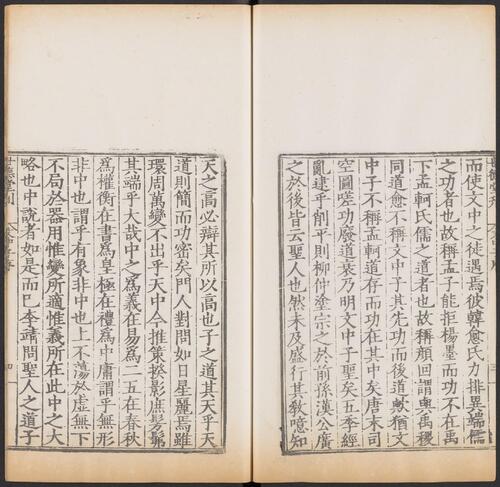 而使文中之徒遇焉彼韓愈氏力排異端儒
之功者也故稱孟子能拒楊墨而功不在禹
下孟軻氏儒之道者也故稱顏回謂與禹稷
同道愈不稱文中子其先功而後道歟猶文
中子不稱孟軻道存而功在其中矣唐末司
空圖嗟功廢道衰乃明文中子聖矣五季經
亂逮乎削平則柳仲塗宗之於前孫漢公廣
之於後皆云聖人也然未及盛行其教噫知
天之高必辯其所以高也子之道其天乎天
道則簡而功密矣門人對問如日星麗焉雖
環周萬變不出乎天中今推策揆影庶髣髴
其端乎大哉中之爲義在易爲二五在春秋
爲權衡在書爲皇極在禮爲中庸謂乎無形
非中也謂乎有象非中也上不蕩於虛無下
不局於器用惟變所適惟義所在此中之大
略也中說者如是而已李靖問聖人之道子
世德堂刊
四